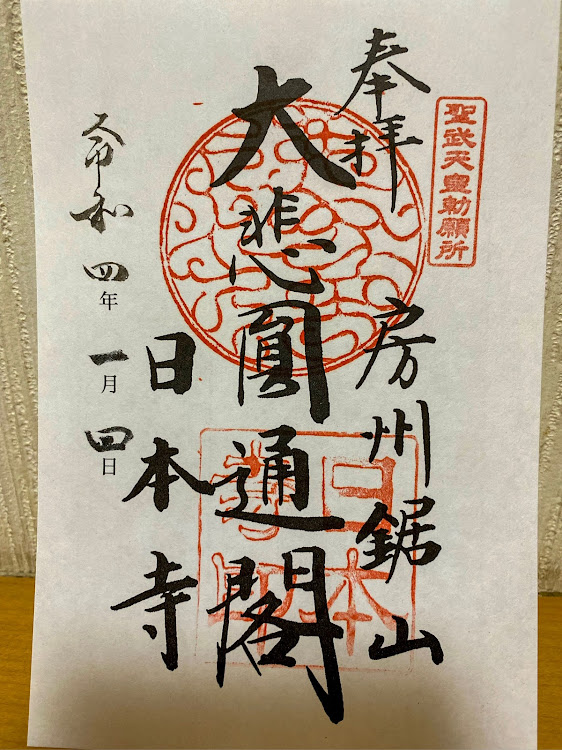 聖武天皇勅願所
奉拝
房州鋸山
大悲圓通閣
日本寺
令和四年一月四日